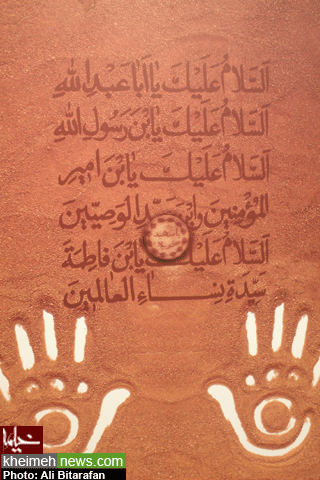 اَلسَّلامُ عَلَيْكَ يا اَبا عَبْدِ اللهِ
اَلسَّلامُ عَلَيْكَ يَا بْنَ رَسُولِ اللهِ
اَلسَّلامُ عَلَيْكَ يَا بْنَ اَميرِ
الْمُؤْمِنينَ وَابْنَ سَيِّدِ الْوَصِيّينَ
اَلسَّلامُ عَلَيْكَ يَا بْنَ فاطِمَةَ
سَيِّدَةِ نِساءِ الْعالَمينَ
خیمه
kheimehnews.com
Photo: Ali Bitarafan